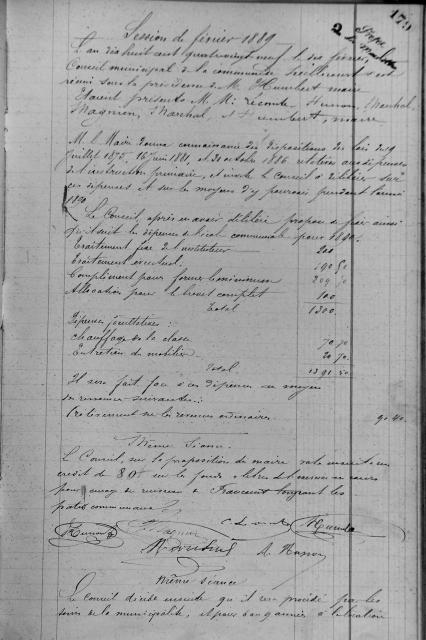 179
Session de février 1889
L'an dix huit cent quatre vingt neuf le dix février,
Conseil municipal de la commune de s'est
réuni sous la présidence de M. Humbert maire
Etaient présents M. M. Marchal,
Magnien, Marchal, et Humbert, maire
M. le Maire donne connaissance des dispositions des lois des 19
Juillet 1875, 16 juin 1881, et 30 octobre 1886 relatives aux dépenses
de l'instruction primaire, et invite le Conseil à délibérer sur
ces dépenses et sur les moyens d'y pourvoir pendant l'année
1890.
Le Conseil, après en avoir délibéré propose de fixer ainsi
qu'il suit les dépenses de l'école communale pour 1890.
Traitement fixe de l'instituteur 200
Traitement éventuel 190 50
Complément pour former le minimum 209 50
Allocation pour le brevet complet 100
Total 1300
Dépenses facultatives :
Chauffage de la classe 70 70
Entretien du mobilier 20 70
Total 1391 50
Il sera fait face à ces dépenses au moyen
des ressources suivantes :
Prélèvement sur les revenus ordinaires 91 40
Même Séance
Le Conseil, sur la proposition du maire vote ensuite un
crédit de 80f sur les fonds libres de l'exercice en cours
pour curage du ruisseau de longeant les
communaux
Magnien
Marchal
Même séance
Le conseil décide ensuite qu'il sera procédé par les
soins de la municipalité, et pour années à la location